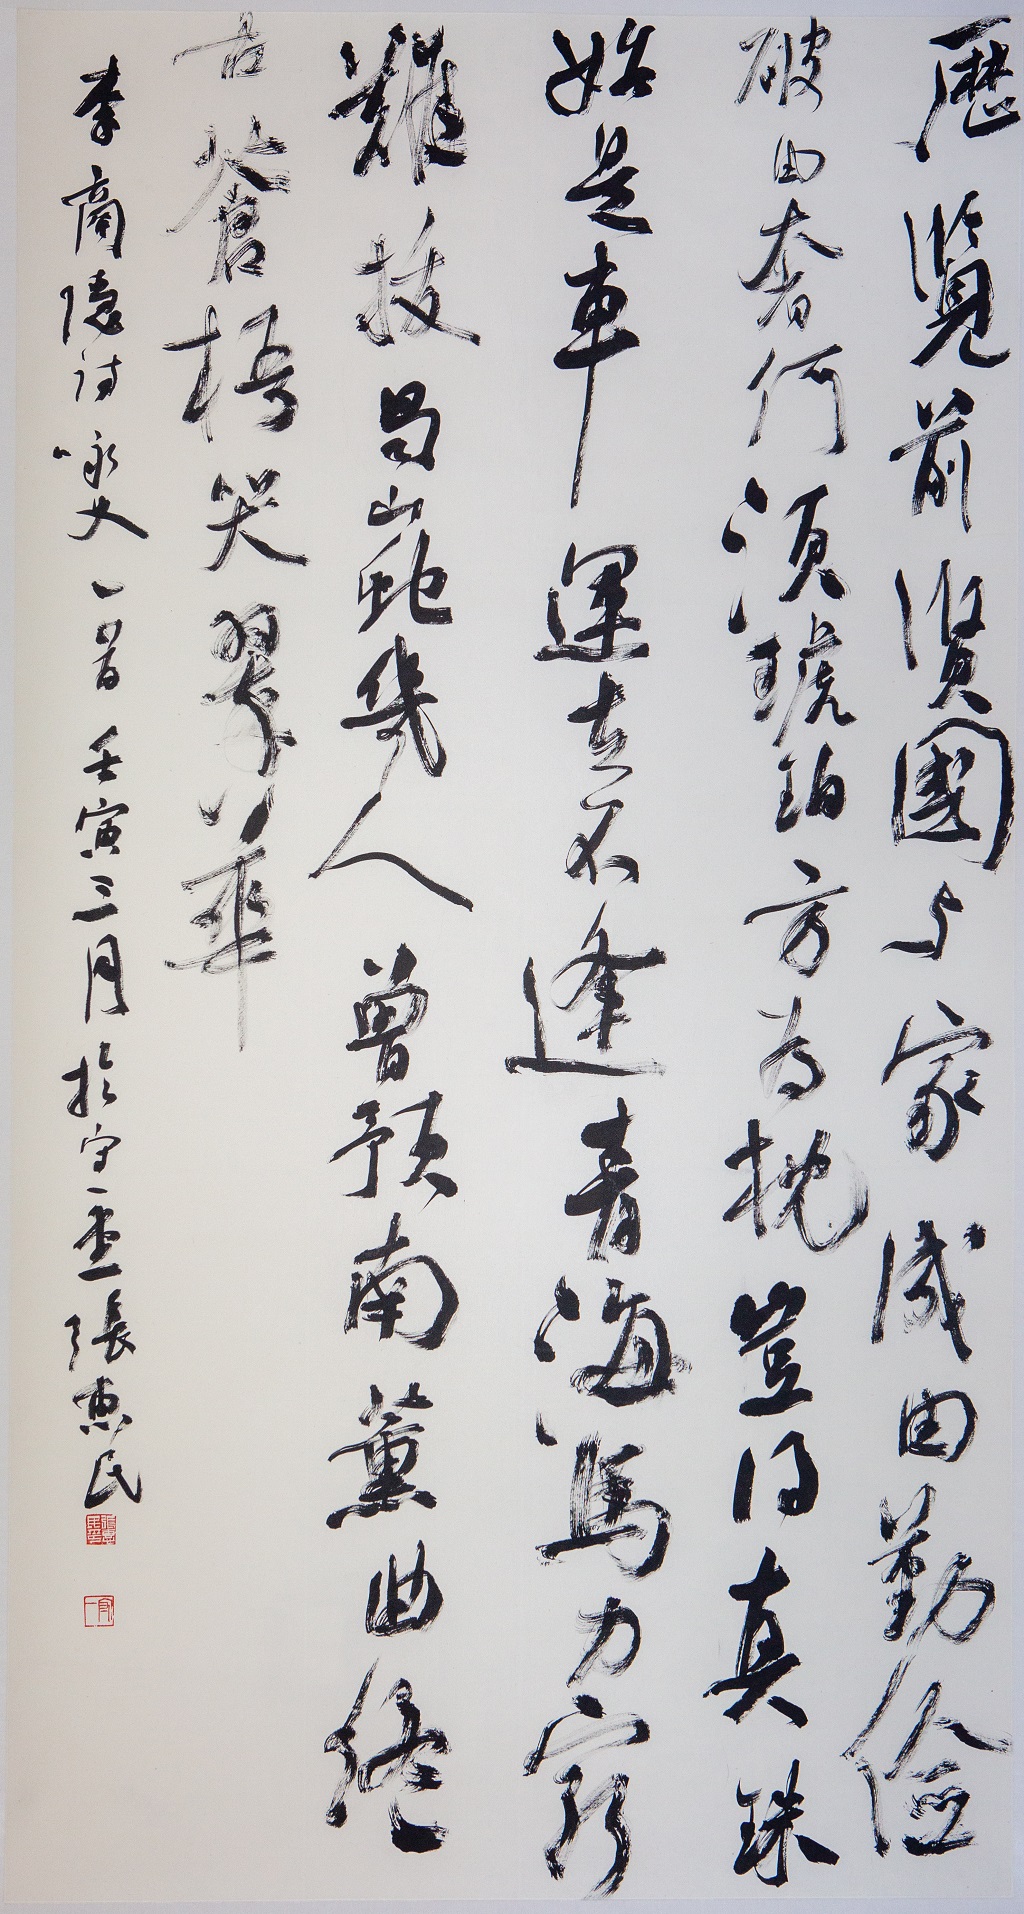 歷覽前賢國与家成由勤儉
破由奢何須琥珀方为枕豈得真珠
始是車運去不逢青海馬力窮
難拔蜀山蛇幾人曾預南薰曲終
古蒼梧哭翠華
李商隱诗咏史一首壬寅三月於守一張惠民